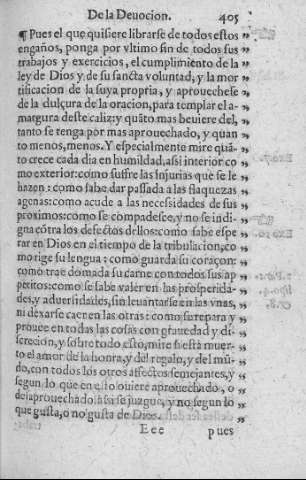 De la Deuocion. 405
¶ Pues el que quisiere librarse de todos estos „
engaños, ponga por vltimo fin de todos sus „
trabajos y exercicios, el cumplimiento de la „
ley de Dios y de su sancta voluntad, y la mor „
tificacion de la suya propria, y aprouechese „
de la dulçura de la oracion, para templar el a- „
margura deste caliz: y quãto mas beuiere del, „
tanto se tenga por mas aprouechado, y quan „
to menos, menos. Y especialmente mire quã- „
to crece cada dia en humildad, assi interior co „
mo exterior: como suffre las injurias que se le „
hazen: como sabe dar passada a las flaquezas „
agenas: como acude a las necessidades de sus „
proximos: como se compadesce, y no se indi- „
gna cõtra los defectos dellos: como sabe espe „
rar en Dios en el tiempo de la tribulacion, co „
mo rige su lengua: como guarda su coraçon: „
como trae domada su carne con todos sus ap „
petitos: como se sabe valer en las prosperida- „
des, y aduersidades, sin leuantarse en las vnas, „
ni dexarse caer en las otras: como se repara y „
prouee en todas las cosas con grauedad y di- „
screcion, y sobre todo esto, mire si està muer- „
to el amor de la honra, y del regalo, y del mũ- „
do, con todos los otros affectos semejantes, y „
segun lo que en esto vuiere aprouechado, o „
desaprouechado assi se juzgue, y no segun lo „
que gusta, o no gusta de Dios. „
Eee pues